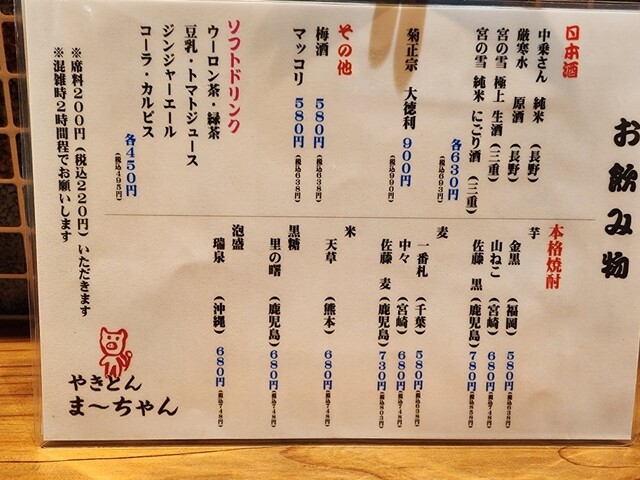 お飲み物
日本酒
中乗さん 純米 (長野)
厳寒水 原酒 (長野)
宮の雪 極上 生酒 (三重)
宮の雪 純米 にごり酒 (三重)
各630円
(税込693円)
菊正宗 大徳利 900円
(税込990円)
その他
梅酒 580円
(税込638円)
マッコリ 580円
(税込638円)
ソフトドリンク
ウーロン茶・緑茶
豆乳・トマトジュース
ジンジャーエール
コーラ・カルピス
各450円
(税込495円)
本格焼酎
芋
金黒 (福岡) 580円 (税込638円)
山ねこ (宮崎) 680円 (税込748円)
佐藤 黒 (鹿児島) 780円 (税込858円)
麦
一番札 (千葉) 580円 (税込638円)
中々 (宮崎) 680円 (税込748円)
佐藤 麦 (鹿児島) 730円 (税込803円)
米
天草 (熊本) 680円 (税込748円)
黒糖
里の曙 (鹿児島) 680円 (税込748円)
泡盛
瑞泉 (沖縄) 680円 (税込748円)
※席料200円(税込220円)いただきます
※混雑時2時間程でお願いします
やきとん
ま〜ちゃん